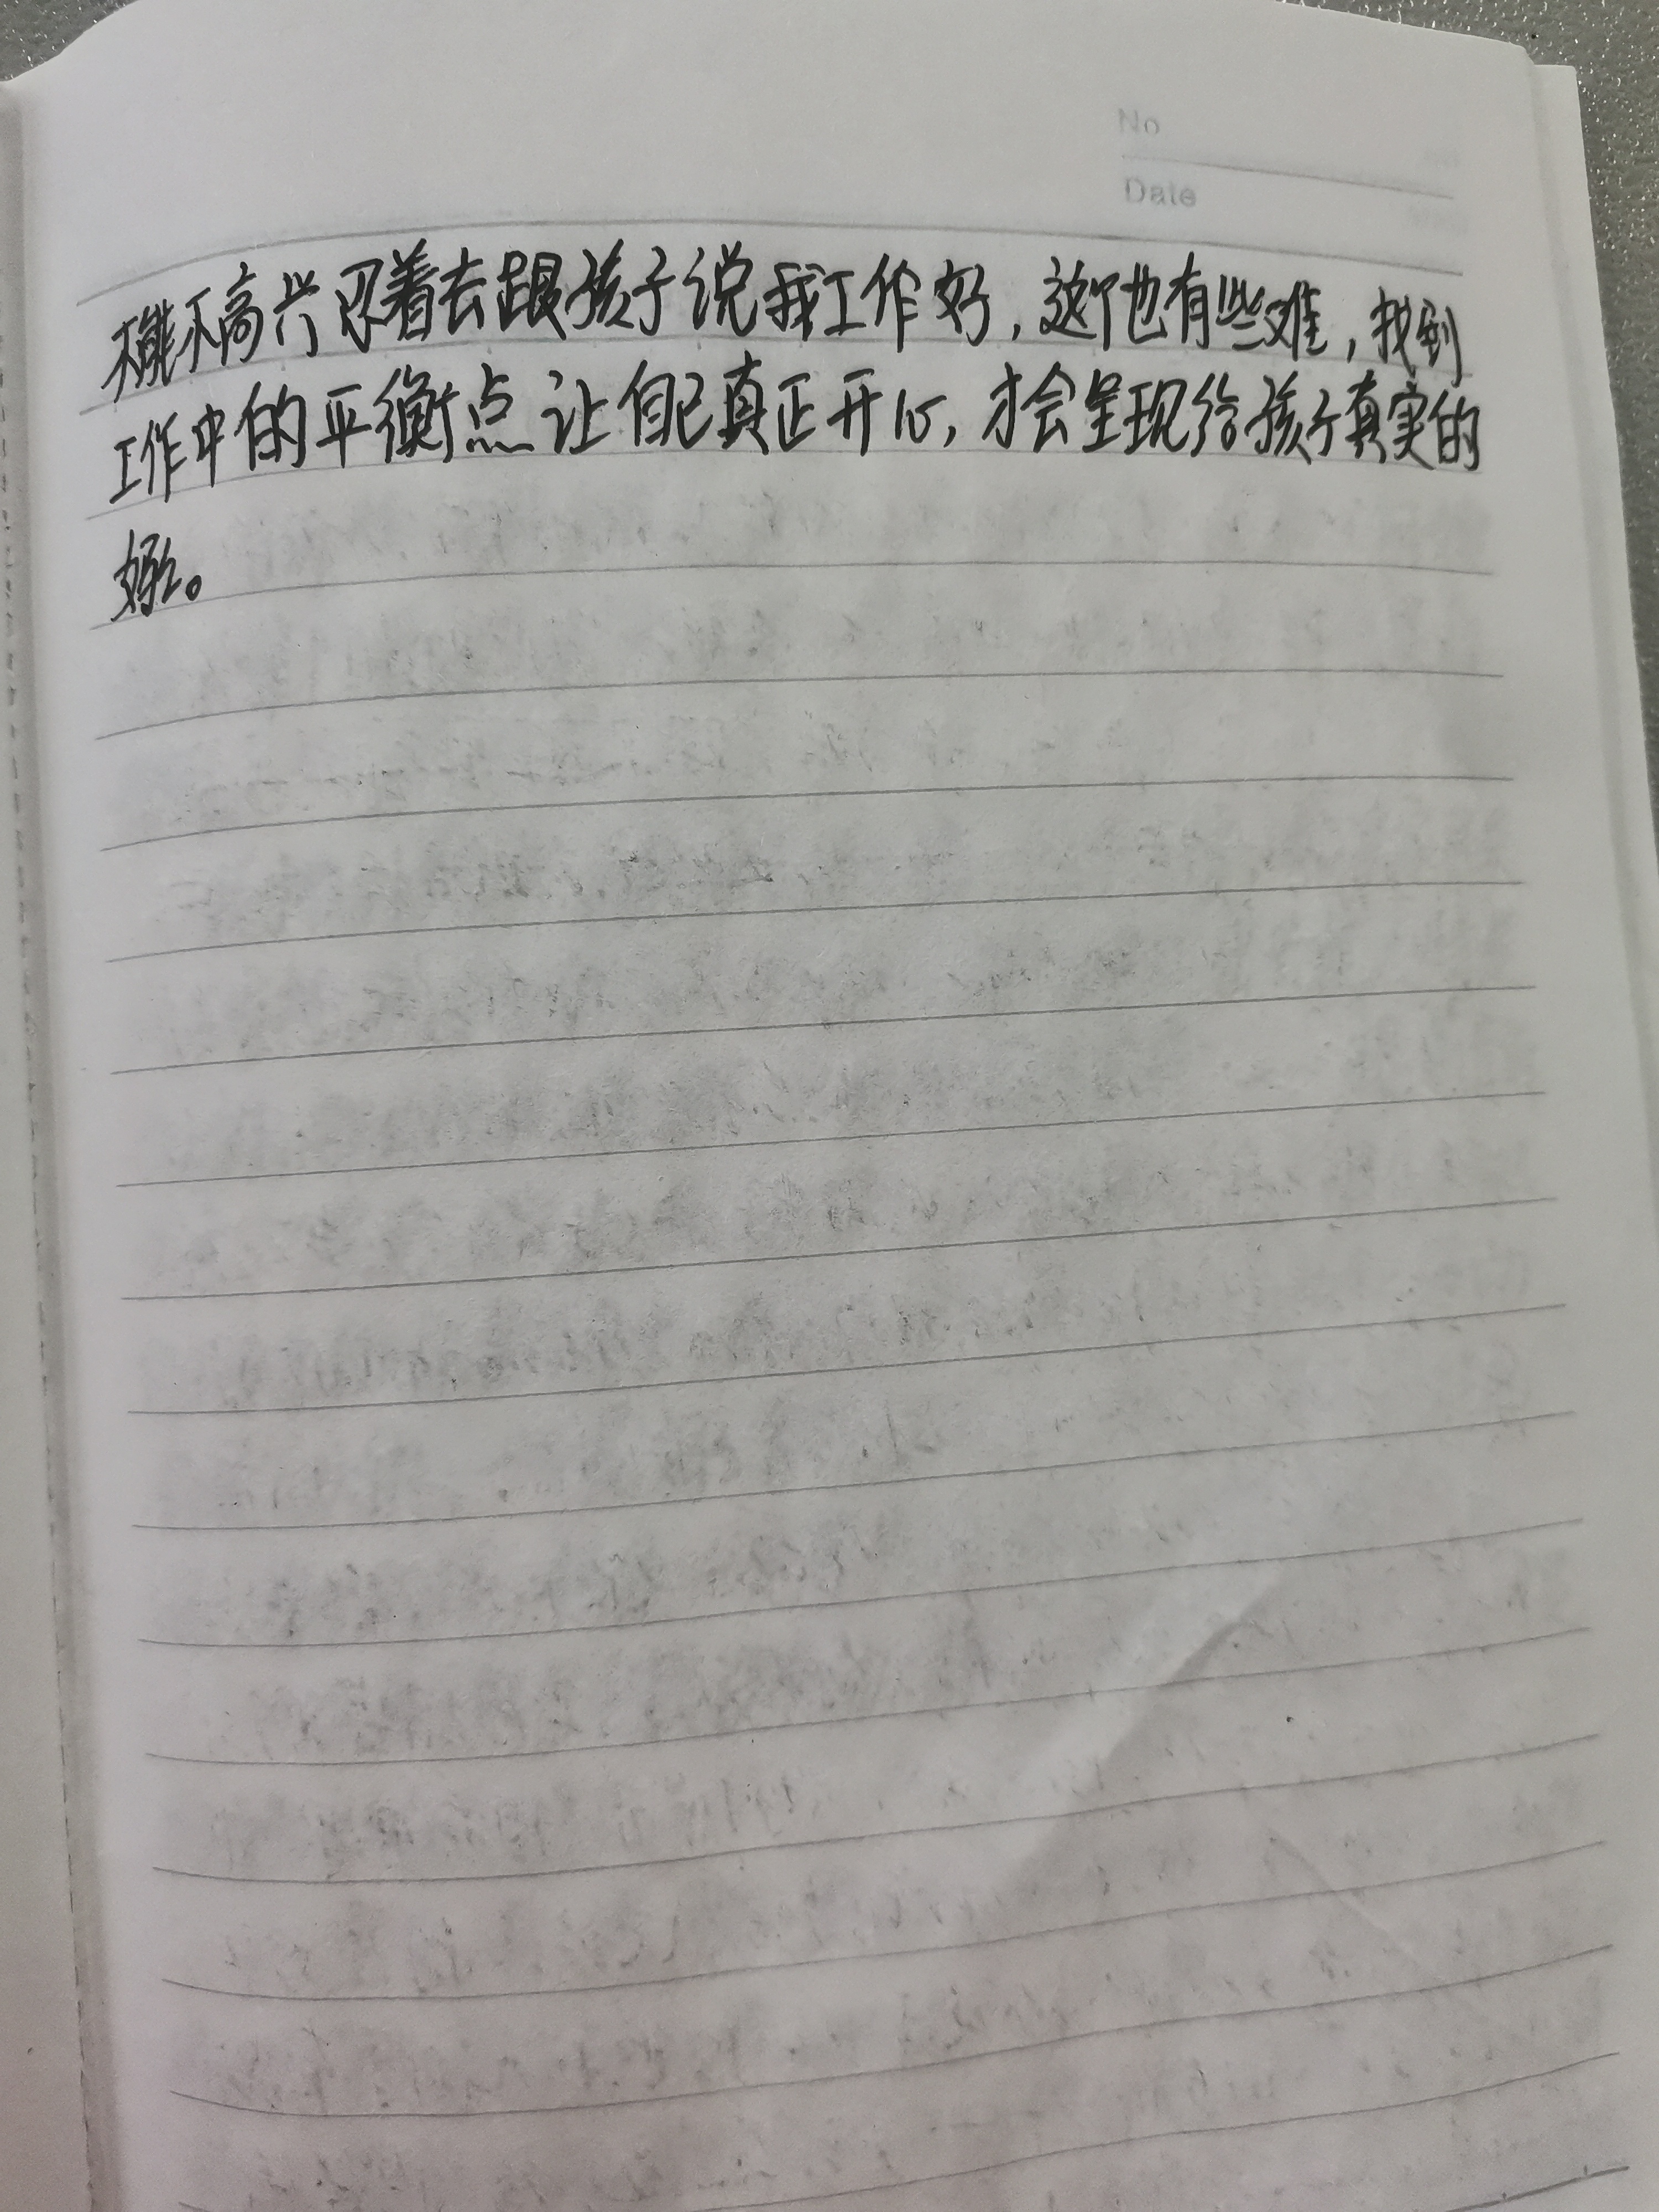 No
Date
不能不高兴忍着去跟孩子说我工作好，这个也有些难，找到
工作中的平衡点让自己真正开心，才会呈现给孩子真实的
好。